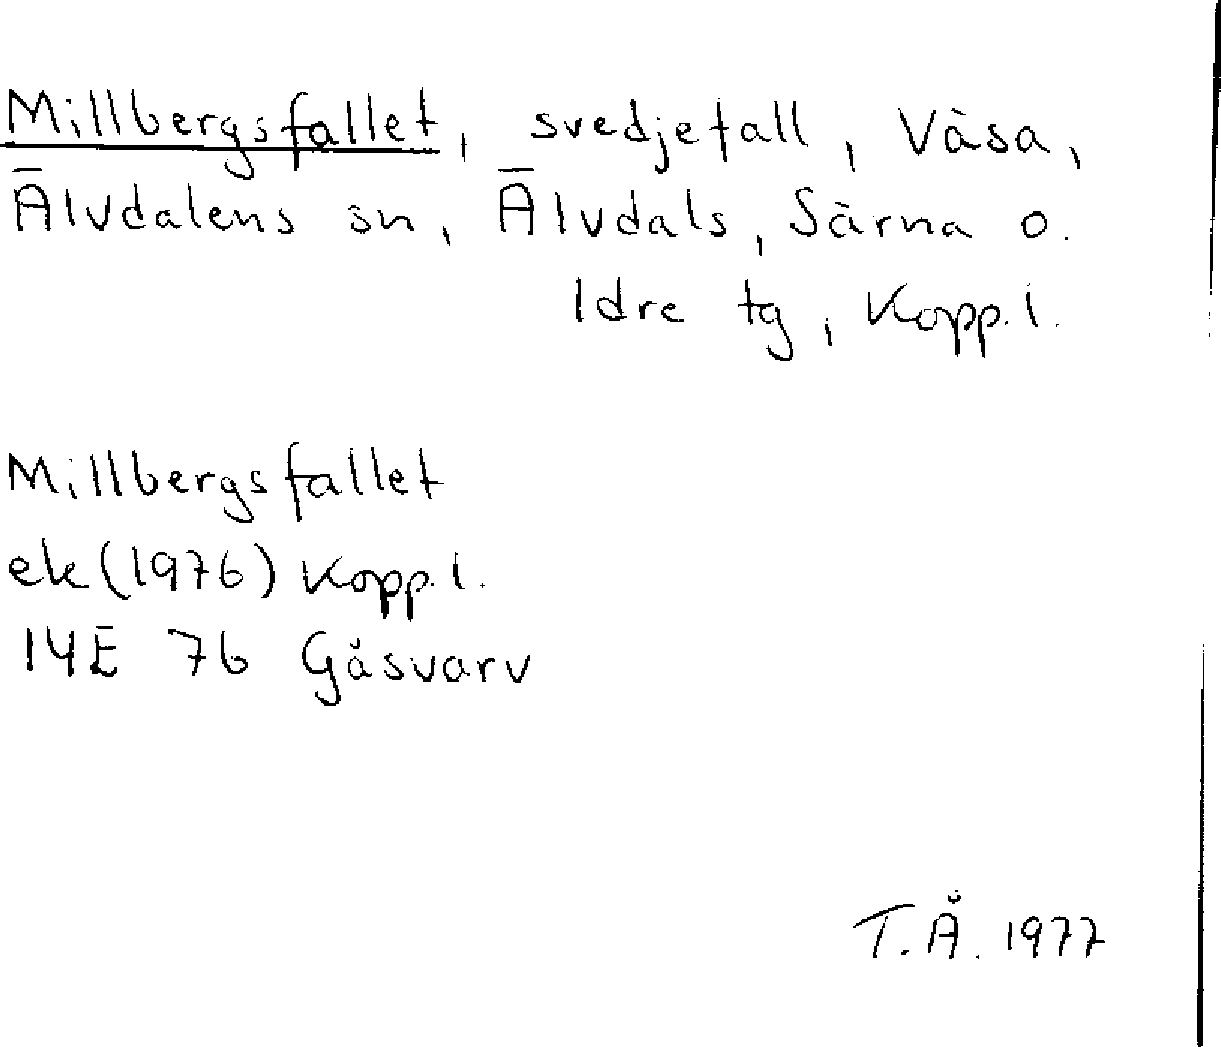 Millbergsfallet, svedjefall, Väsa,
Älvdalens sn, Älvdals, Särna o.
Idre tg, Kopp. l.
Millbergsfallet
ek (1976) Kopp. l.
14E 7b Gåsvarv
T.Å. 1977